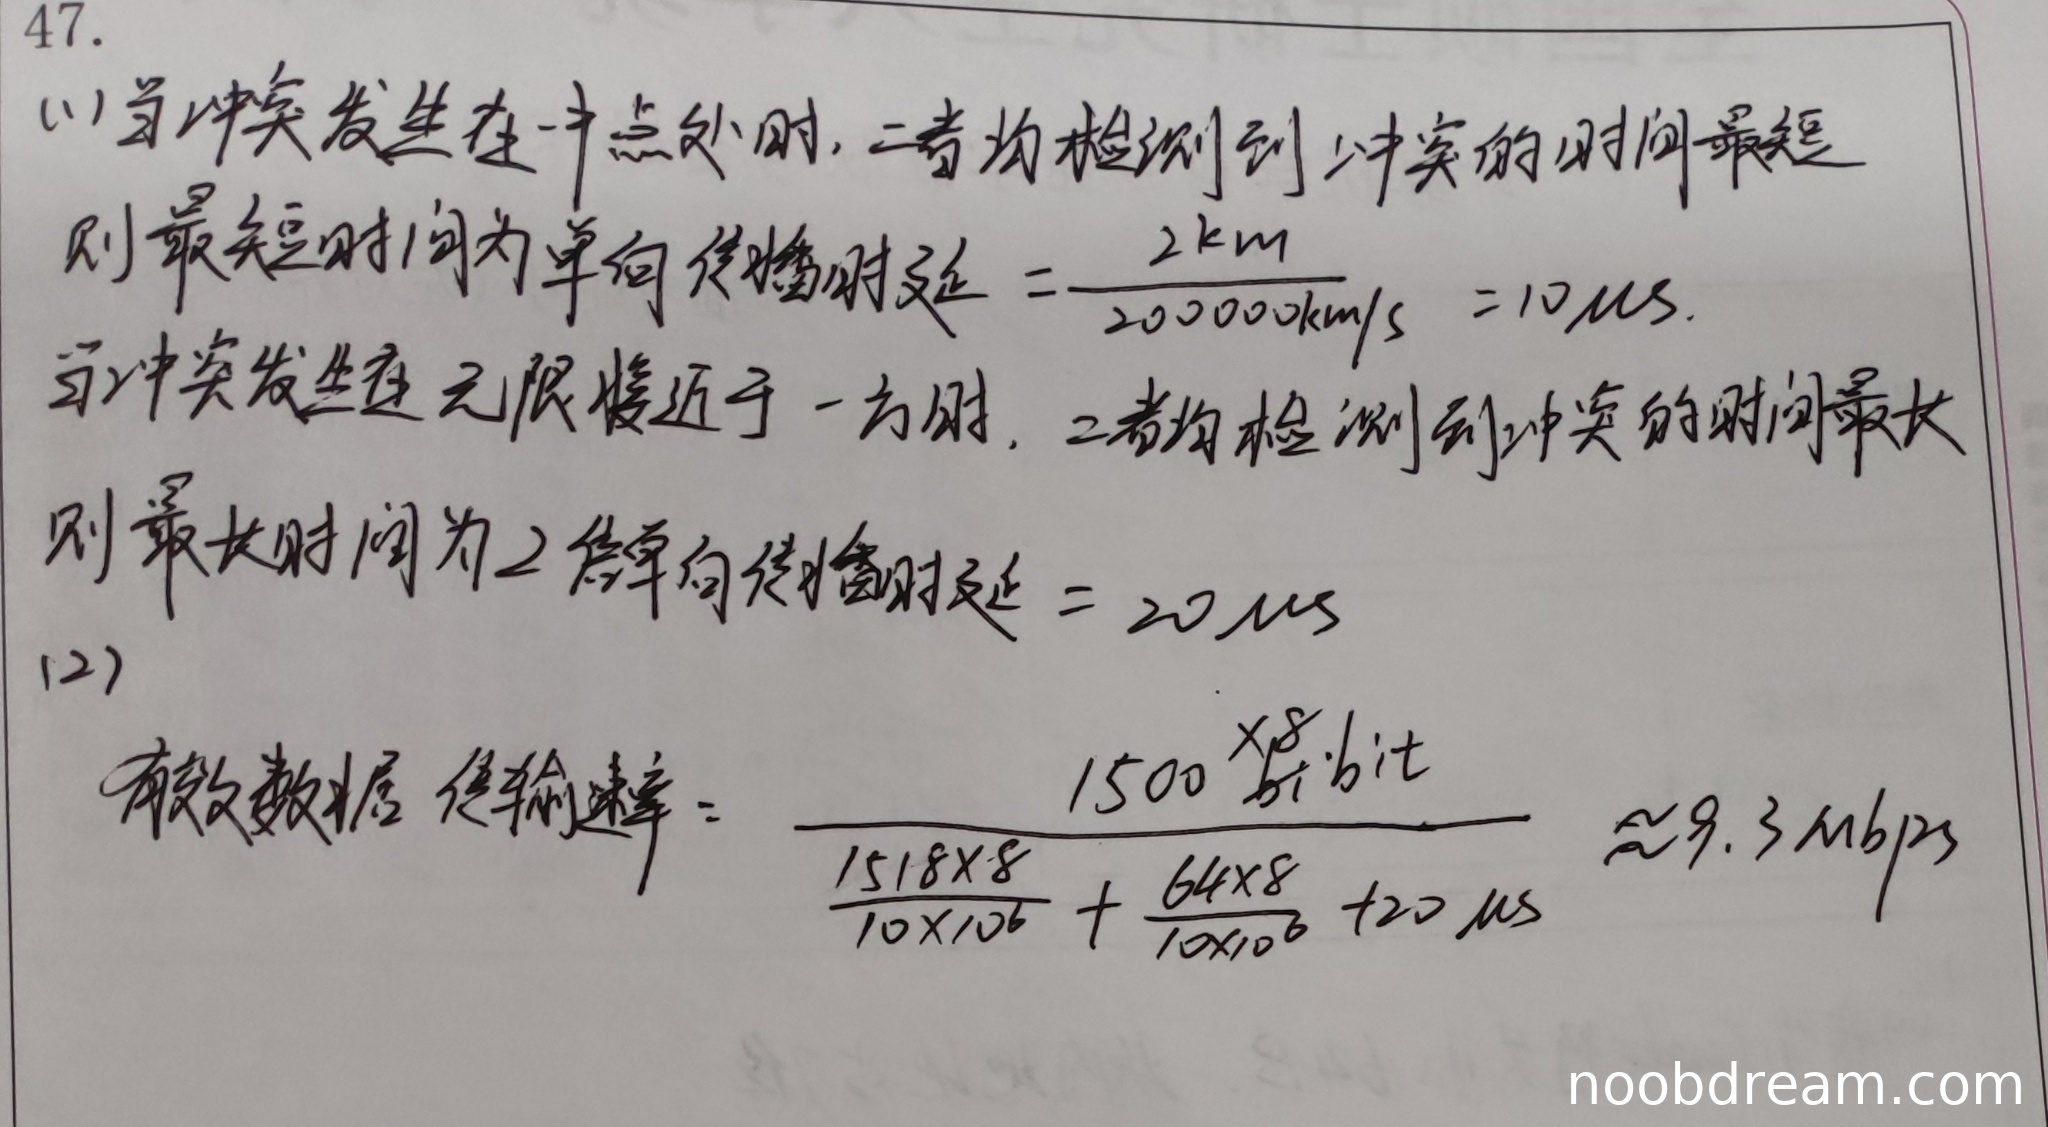 47.
(1)当冲突发生在中点处时，二者均检测到冲突的时间最短
则最短时间为单向传播时延 = 2km / 200000km/s = 10μs.
当冲突发生在无限接近于一方时，二者均检测到冲突的时间最长
则最长时间为2倍单向传播时延 = 20μs
(2)
有效数据传输速率 = 1500×8 bit / (1518×8 / 10×10⁶ + 64×8 / 10×10⁶ + 20μs) ≈ 9.3Mbps
noobdream.com